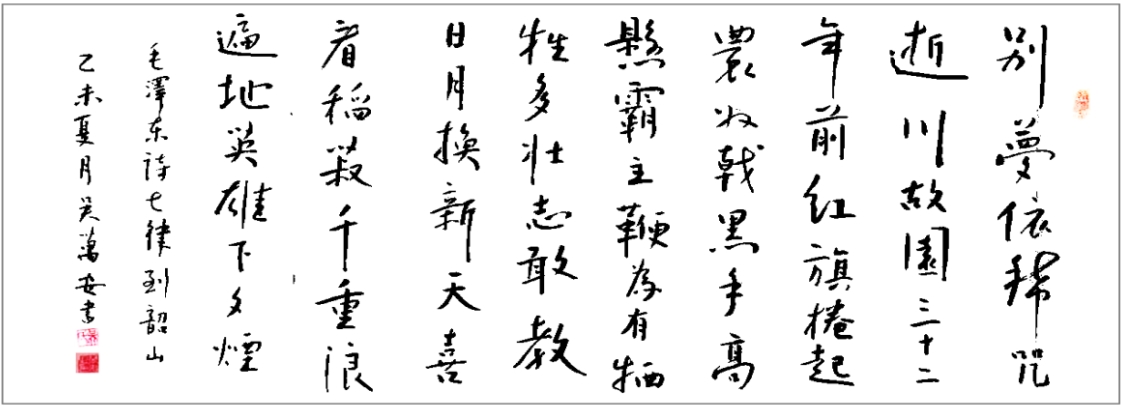 别夢依稀咒
逝川故園三十二
年前红旗捲起
農奴戟黑手高
懸霸主鞭為有牺
牲多壯志敢教
日月換新天喜
看稻菽千重浪
遍地英雄下夕煙
毛澤东詩七律到韶山
乙未夏月吴萬安書